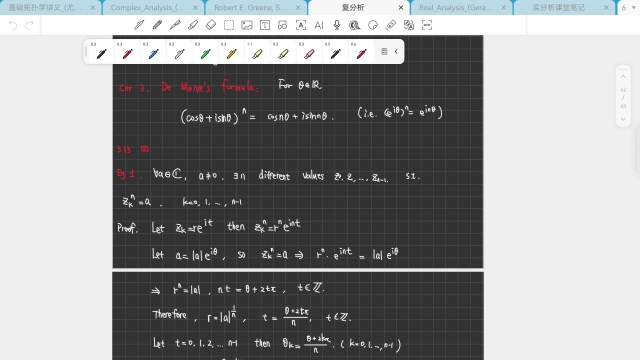 基础拓扑学讲义_(尤...
Complex_Analysis_(...
Robert E. Greene, S...
复分析
Real_Analysis_(Gera...
实分析课堂笔记
6
0.3 0.3 0.3 0.3 0.3 0.3 1.1 0.3 0.3 0.3 0.4
Cor 3. De Moivre's formula: For θ∈ℝ.
(cosθ+isinθ)^n = cosnθ+isinnθ. (i.e. (e^{iθ})^n = e^{inθ})
3.13
Eg 1. ∀a∈ℂ, a≠0, ∃n different values z₀, z₁, ..., z_{n-1}, s.t.
z_k^n=a. k=0, 1, ..., n-1
Proof. Let z_k=re^{it} then z_k^n=r^n e^{int}
Let a=|a|e^{iθ}, so z_k^n=a ⇒ r^n · e^{int} = |a|e^{iθ}
⇒ r^n=|a|, nt = θ+2tπ, t∈ℤ.
Therefore, r=|a|^{1/n}, t = (θ+2tπ)/n, t∈ℤ.
Let t=0, 1, 2, ... n-1 then θ_k = (θ+2kπ)/n. (k=0, 1, ..., n-1)